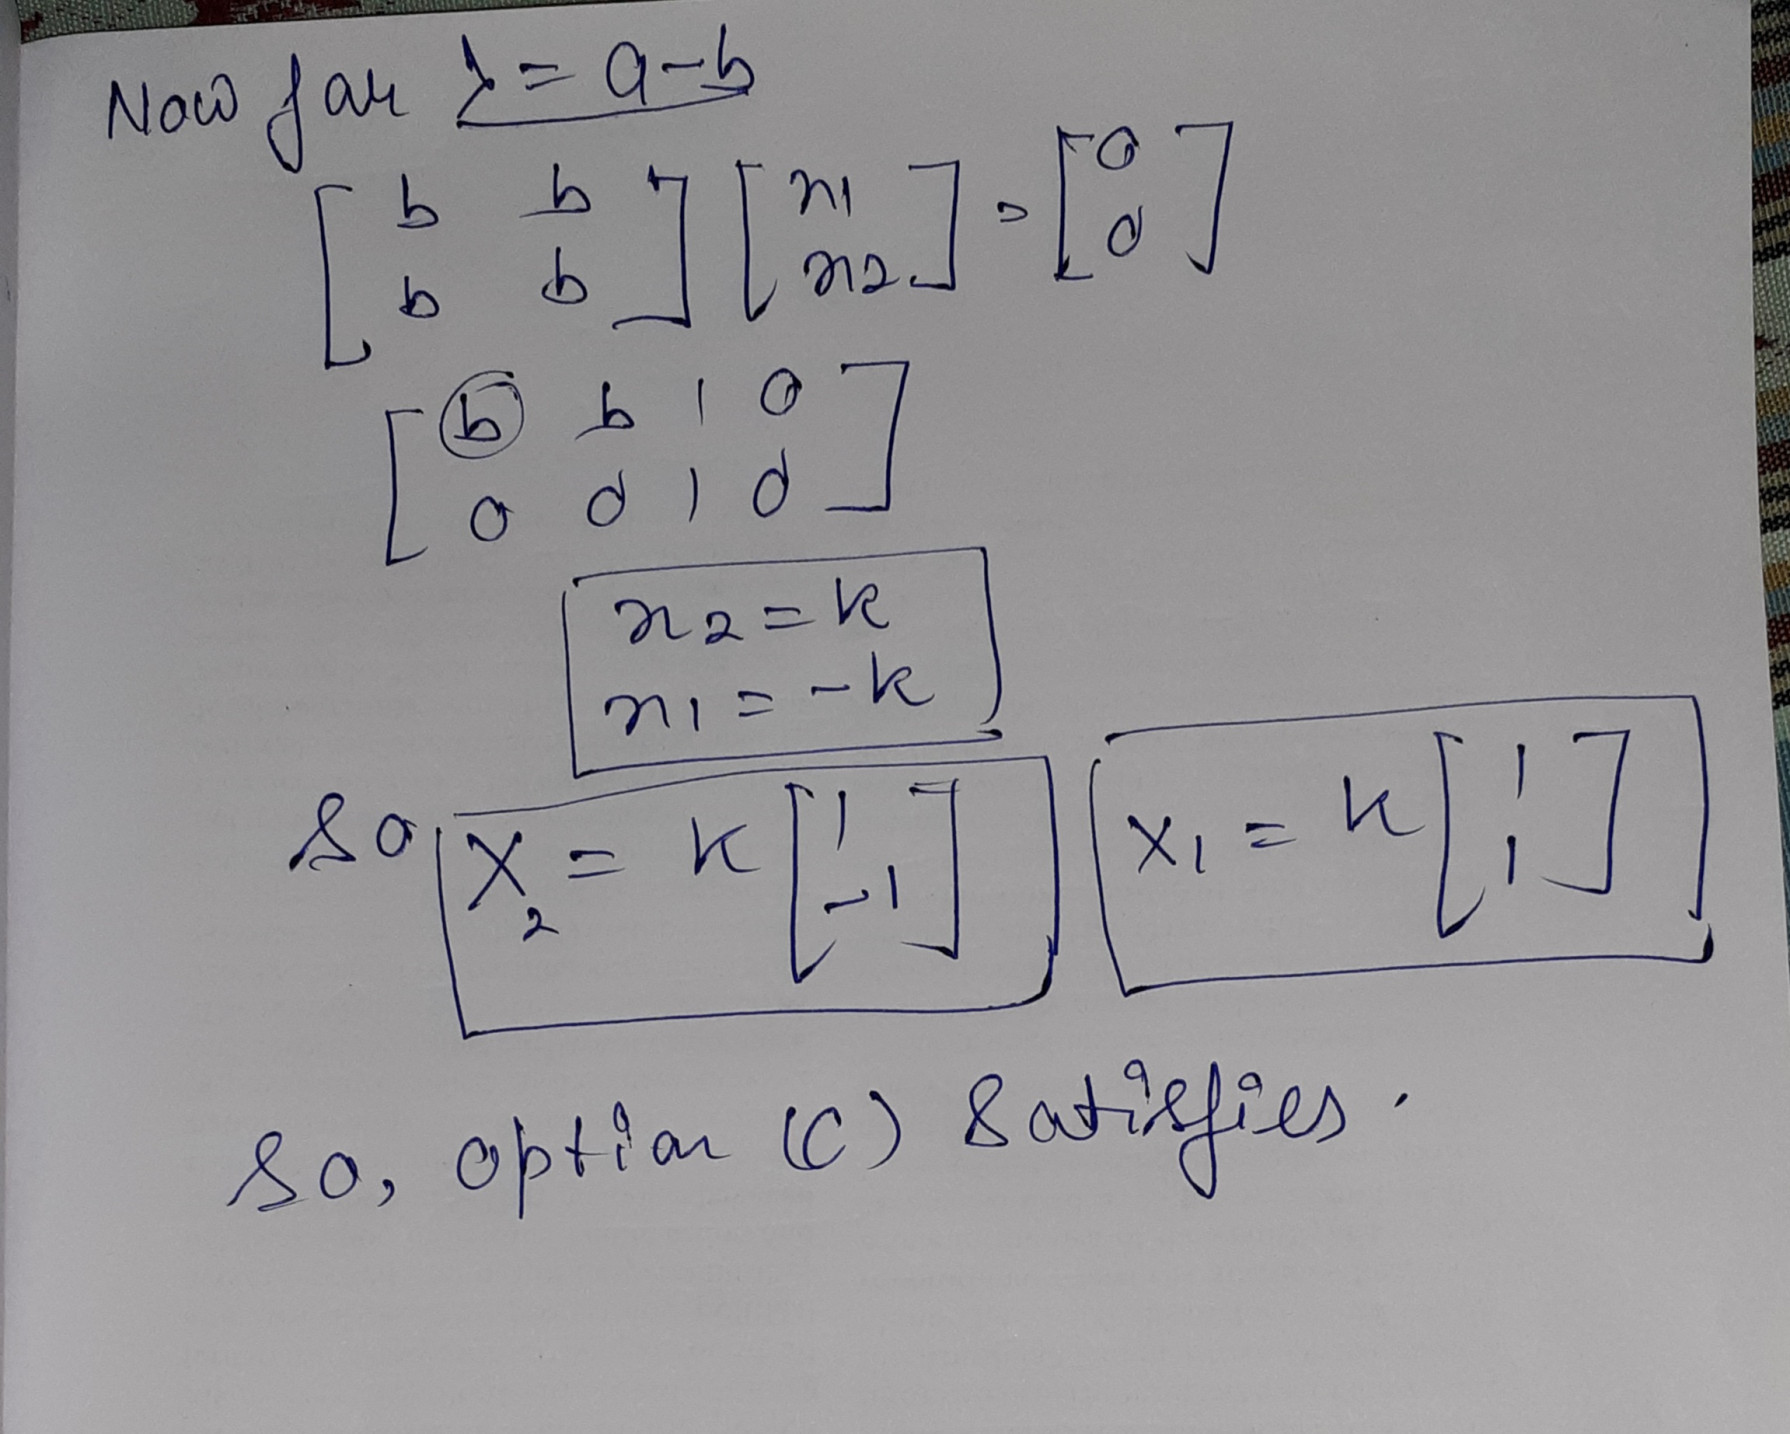 Now for λ = a-b
[ b b ] [ x1 ] = [ 0 ]
[ b b ] [ x2 ] [ 0 ]
[ b b | 0 ]
[ 0 0 | 0 ]
x2 = k
x1 = -k
So X2 = k [ 1 -1 ] X1 = k [ 1 1 ]
So, option (C) Satisfies.